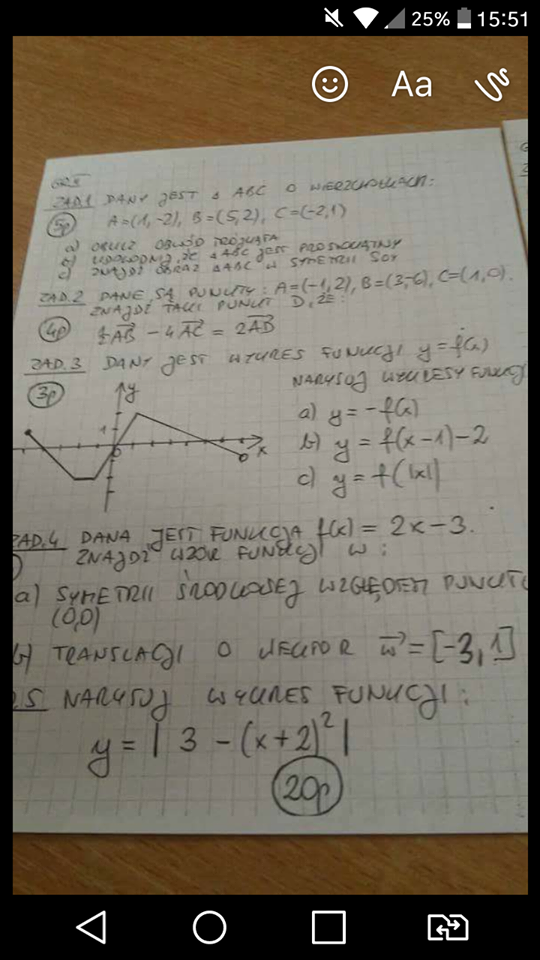 25% 15:51
Aa
GR 5
ZAD.1 DANY JEST Δ ABC O WIERZCHOŁKACH:
5p A=(1,-2), B=(5,2), C=(-2,1)
a) OBLICZ OBWÓD TRÓJKĄTA
b) UDOWODNIJ, ŻE ΔABC JEST PROSTOKĄTNY
c) ZNAJDŹ OBRAZ ΔABC W SYMETRII
ZAD.2 DANE SĄ PUNKTY: A=(-1,2), B=(3,-6), C=(1,0).
ZNAJDŹ TAKI PUNKT D, ŻE:
4p AB - 4AC = 2AD
ZAD.3 DANY JEST WYKRES FUNKCJI y=f(x)
3p NARYSUJ WYKRESY FUNKCJ
y
1
0
x
a) y=-f(x)
b) y=f(x-1)-2
c) y=f(|x|)
ZAD.4 DANA JEST FUNKCJA f(x)=2x-3.
ZNAJDŹ WZÓR FUNKCJI W:
a) SYMETRII ŚRODKOWEJ WZGLĘDEM PUNKTU
(0,0)
b) TRANSLACJI O WEKTOR w=[-3,1]
5 NARYSUJ WYKRES FUNKCJI:
y=|3-(x+2)²|
20p